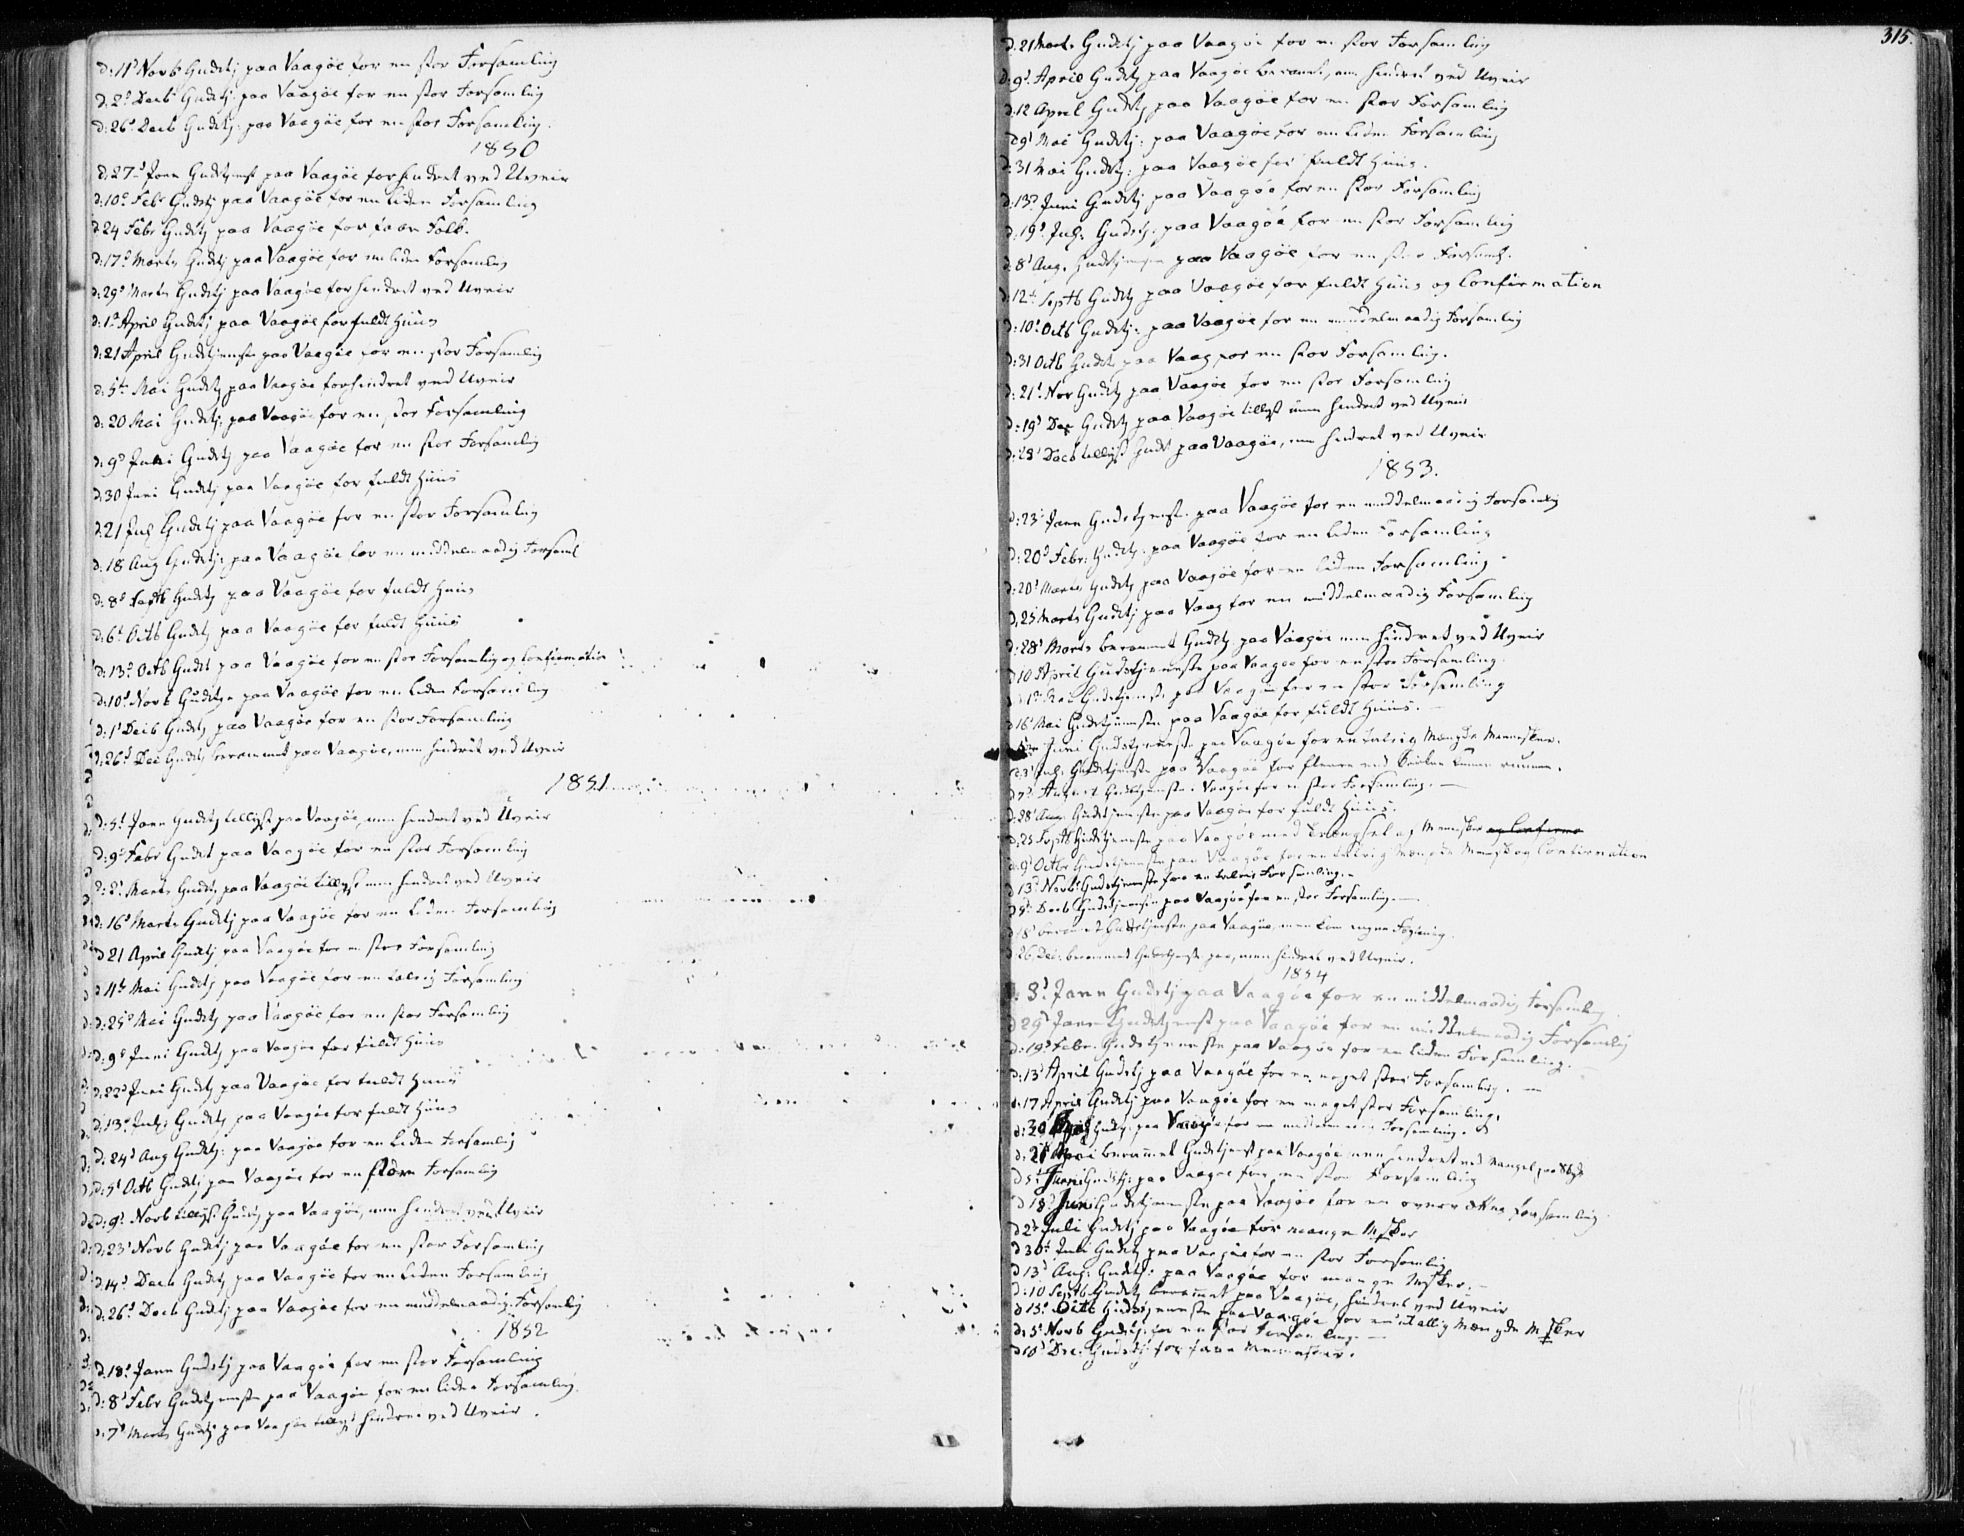 d: 11t Novb Gudstj paa Vaagøe for en stor Forsamling
d. 2d Decb Gudstj: paa Vaagøe for en stor Forsamling
d: 26d Decb Gudstj: paa Vaagøe for en stor Forsamling.
1850
d: 27d Janr Gudstjenst paa Vaagøe forhindret ved Uveir
d: 10d Febr Gudstj paa Vaagøe for en liden Forsamling
d 24 Febr Gudstj paa Vaagøe for faae Folk.
d: 17d Marts Gudstj paa Vaagøe for en liden Forsamling
d: 29d Marts Gudstj paa Vaagøe forhindret ved Uveir
d: 1d April Gudstj paa Vaagøe for fuldt Huus
d: 21 April Gudstjenste paa Vaagøe for en stor Forsamling
d: 5te Mai Gudstj paa Vaagøe forhindret ved Uveir
d: 20 Mai Gudstj: paa Vaagøe for en stor Forsamling
d: 9d Juni Gudstj paa Vaagøe for en stor Forsamling
d. 30 Juni Gudstj paa Vaagøe for fuldt Huus
d: 21 July Gudstj paa Vaagøe for en stor Forsamling
d: 18 Aug Gudstj: paa Vaagøe for en middelmaadig Forsaml
d: 8d Septb Gudstj paa Vaagøe for fuldt Huus
d: 6t Octb Gudstj paa Vaagøe for fuldt Huus
d: 13d Octb Gudst paa Vaagøe for en stor Forsamling og Confirmation
d: 10d Novb Gudstje paa Vaagøe for en liden Forsamling
d: 1t Decb Gudstj paa Vaagøe for en stor Forsamling
d: 26d Dec Gudstj berammet paa Vaagøe, men hindret ved Uveir
1851
d: 5t Janr Gudstj tillyst paa Vaagøe, men hindret ved Uveir
d: 9d Febr Gudst paa Vaagøe for en stor Forsamling
d: 2t Marts Gudstj paa Vaagøe tillyst men hindret ved Uveir
d: 16d Marts Gudstj paa Vaagøe for en liden Forsamling
d 21 April Gudstj paa Vaagøe for en stor Forsamling
d 11te Mai Gudstj paa Vaagøe for en talrig Forsamling
d: 25d Mai Gudstj paa Vaagøe for en stor Forsamling
d: 9d Juni Gudstj paa Vaagøe for fuldt Huus
d: 22d Juni Gudstj paa Vaagøe for fuldt Huus
d: 13d July: Gudstj paa Vaagøe for fuldt Huus
d: 24d Aug Gudstj: paa Vaagøe for en liden Forsamling
d: 5t Octb Gudstj paa Vaagøe for en stor Forsamling
d: 9d Novb tillyst Gudstj paa Vaagøe, men hindret ved Uveir
d: 23d Novb Gudstj paa Vaagøe for en stor Forsamling
d. 14d Decb Gudstj paa Vaagøe for en liden Forsamling
d: 26d Decb Gudstj paa Vaagøe for en middelmaadig Forsamling
1852
d. 18d Janr Gudstj paa Vaagøe for en stor Forsamling
d: 8d Febr Gudstjenste paa Vaagøe for en liden Forsamling.
d: 7d Marts Gudstj paa Vaagøe tillyst hindret ved Uveir.
315.
d: 21 Marts Gudstj paa Vaagøe for en stor Forsamling
d: 9d April Gudstj paa Vaagøe beramet, men hindret ved Uveir
d: 12 April Gudstj paa Vaagøe for en stor Forsamling
d 9d Mai Gudstj: paa Vaagøe for en liden Forsamling
d: 31 Mai Gudstj: paa Vaagøe for fuldt Huus.
d: 13d Juni Gudstj paa Vaagøe for en stor Forsamling
d: 19d July: Gudstj: paa Vaagøe for en stor Forsamling
d: 8d Aug. Gudstjenste paa Vaagøe for en stor Forsaml.
d: 12te Septb Gudstj paa Vaagøe for fuldt Huus og Confirmation
d: 10d Octb Gudstj: paa Vaagøe for en middelmaadig Forsamling
d: 31 Octb Gudst paa Vaag for en stor Forsamling.
d: 21d Nov Gudstj paa Vaagøe for en stor Forsamling
d: 19d Dec Gudstj paa Vaagøe tillyst men hindret ved Uveir
d: 28d Decb tillyst Gudst paa Vaagøe, men hindret ved Uveir
1853.
d: 23d Janr Gudstjenste paa Vaagøe for en middelmaadig Forsamling
d: 20d Febr: Gudstj: paa Vaagøe for en liden Forsamling
d: 20d Marts Gudstj paa Vaagøe for en liden Forsamling
d. 25 Marts Gudstj paa Vaag for en middelmaadig Forsamling
d: 28d Marts berammet Gudstj paa Vaagøe men hindret ved Uveir
d 10 April Gudstjeneste paa Vaagøe for en stor Forsamling
1te Mai Gudstjenste paa Vaagøe for en stor Forsamling
d 16d Mai Gudstjenste paa Vaagøe for fuldt Huus.
Juni Gudstjeneste paa Vaagøe for en talrig Mængde Mennesker.
d. 3d July. Gudstjenste paa Vaagøe for flere end Kirken kunne rumme.
d 7d August Gudstjenste Vaagøe for en stor Forsamling.
d: 28d Aug. Gudstjenste paa Vaagøe for fuldt Huus.
d: 25 Septb Gudstjeneste paa Vaagøe med Trængsel af Mennesker og Confirma
d. 9d Octbr Gudstjenste paa Vaagøe for en talrig Mængde Mennesk og Confirmation
d 13d Novb: Gudstjenste for en talrig Forsamling.
d 5te Decb Gudstjenste paa Vaagøe for en stor Forsamling.
d 18d berammet Gudstjeneste paa Vaagøe, men kom ingen
d 26 Dec: berammet Gudstjenst paa, men hindret ved Uveir.
1854
d: 8d Janr Gudstj paa Vaagøe for en middelmaadig Forsamling
d 29d Janr Gudstjenst paa Vaagøe for en middelmaadig Forsamling
d: 19d Febr. Gudstjeneste paa Vaagøe for en liden Forsamling.
d: 13d April Gudstj paa Vaagøe for en noget stor Forsamling.
d: 17 April Gudstj paa Vaagøe for en meget stor Forsamling.
d: 30 April Gudstj: paa Vaagøe for en middelmaadig Forsamling.
d: 21 Mai berammet Gudstjenst paa Vaagøe men hindret ved Mangel paa Skyds
d 5t Juni Gudstj: paa Vaagøe for en stor Forsamling
d 18d Juni Gudstjenneste paa Vaagøe for en overordtlig Forsamling.
d 2d Juli Gudstj paa Vaagøe for mange Msker
d 30te Juli Gudstj paa Vaagøe for en stor Forsamling
d 13d Aug: Gudstj: paa Vaagøe for mange Msker.
d: 10 Septb Gudstj berammet paa Vaagøe, hindret ved Uveir
d 15d Octb Gudstjenneste paa Vaagøe for en utallig Mængde Msker
d: 5t Novb Gudstj: for en stor Forsamling.
d 10d Dec: Gudstj: for faae Mennesker.